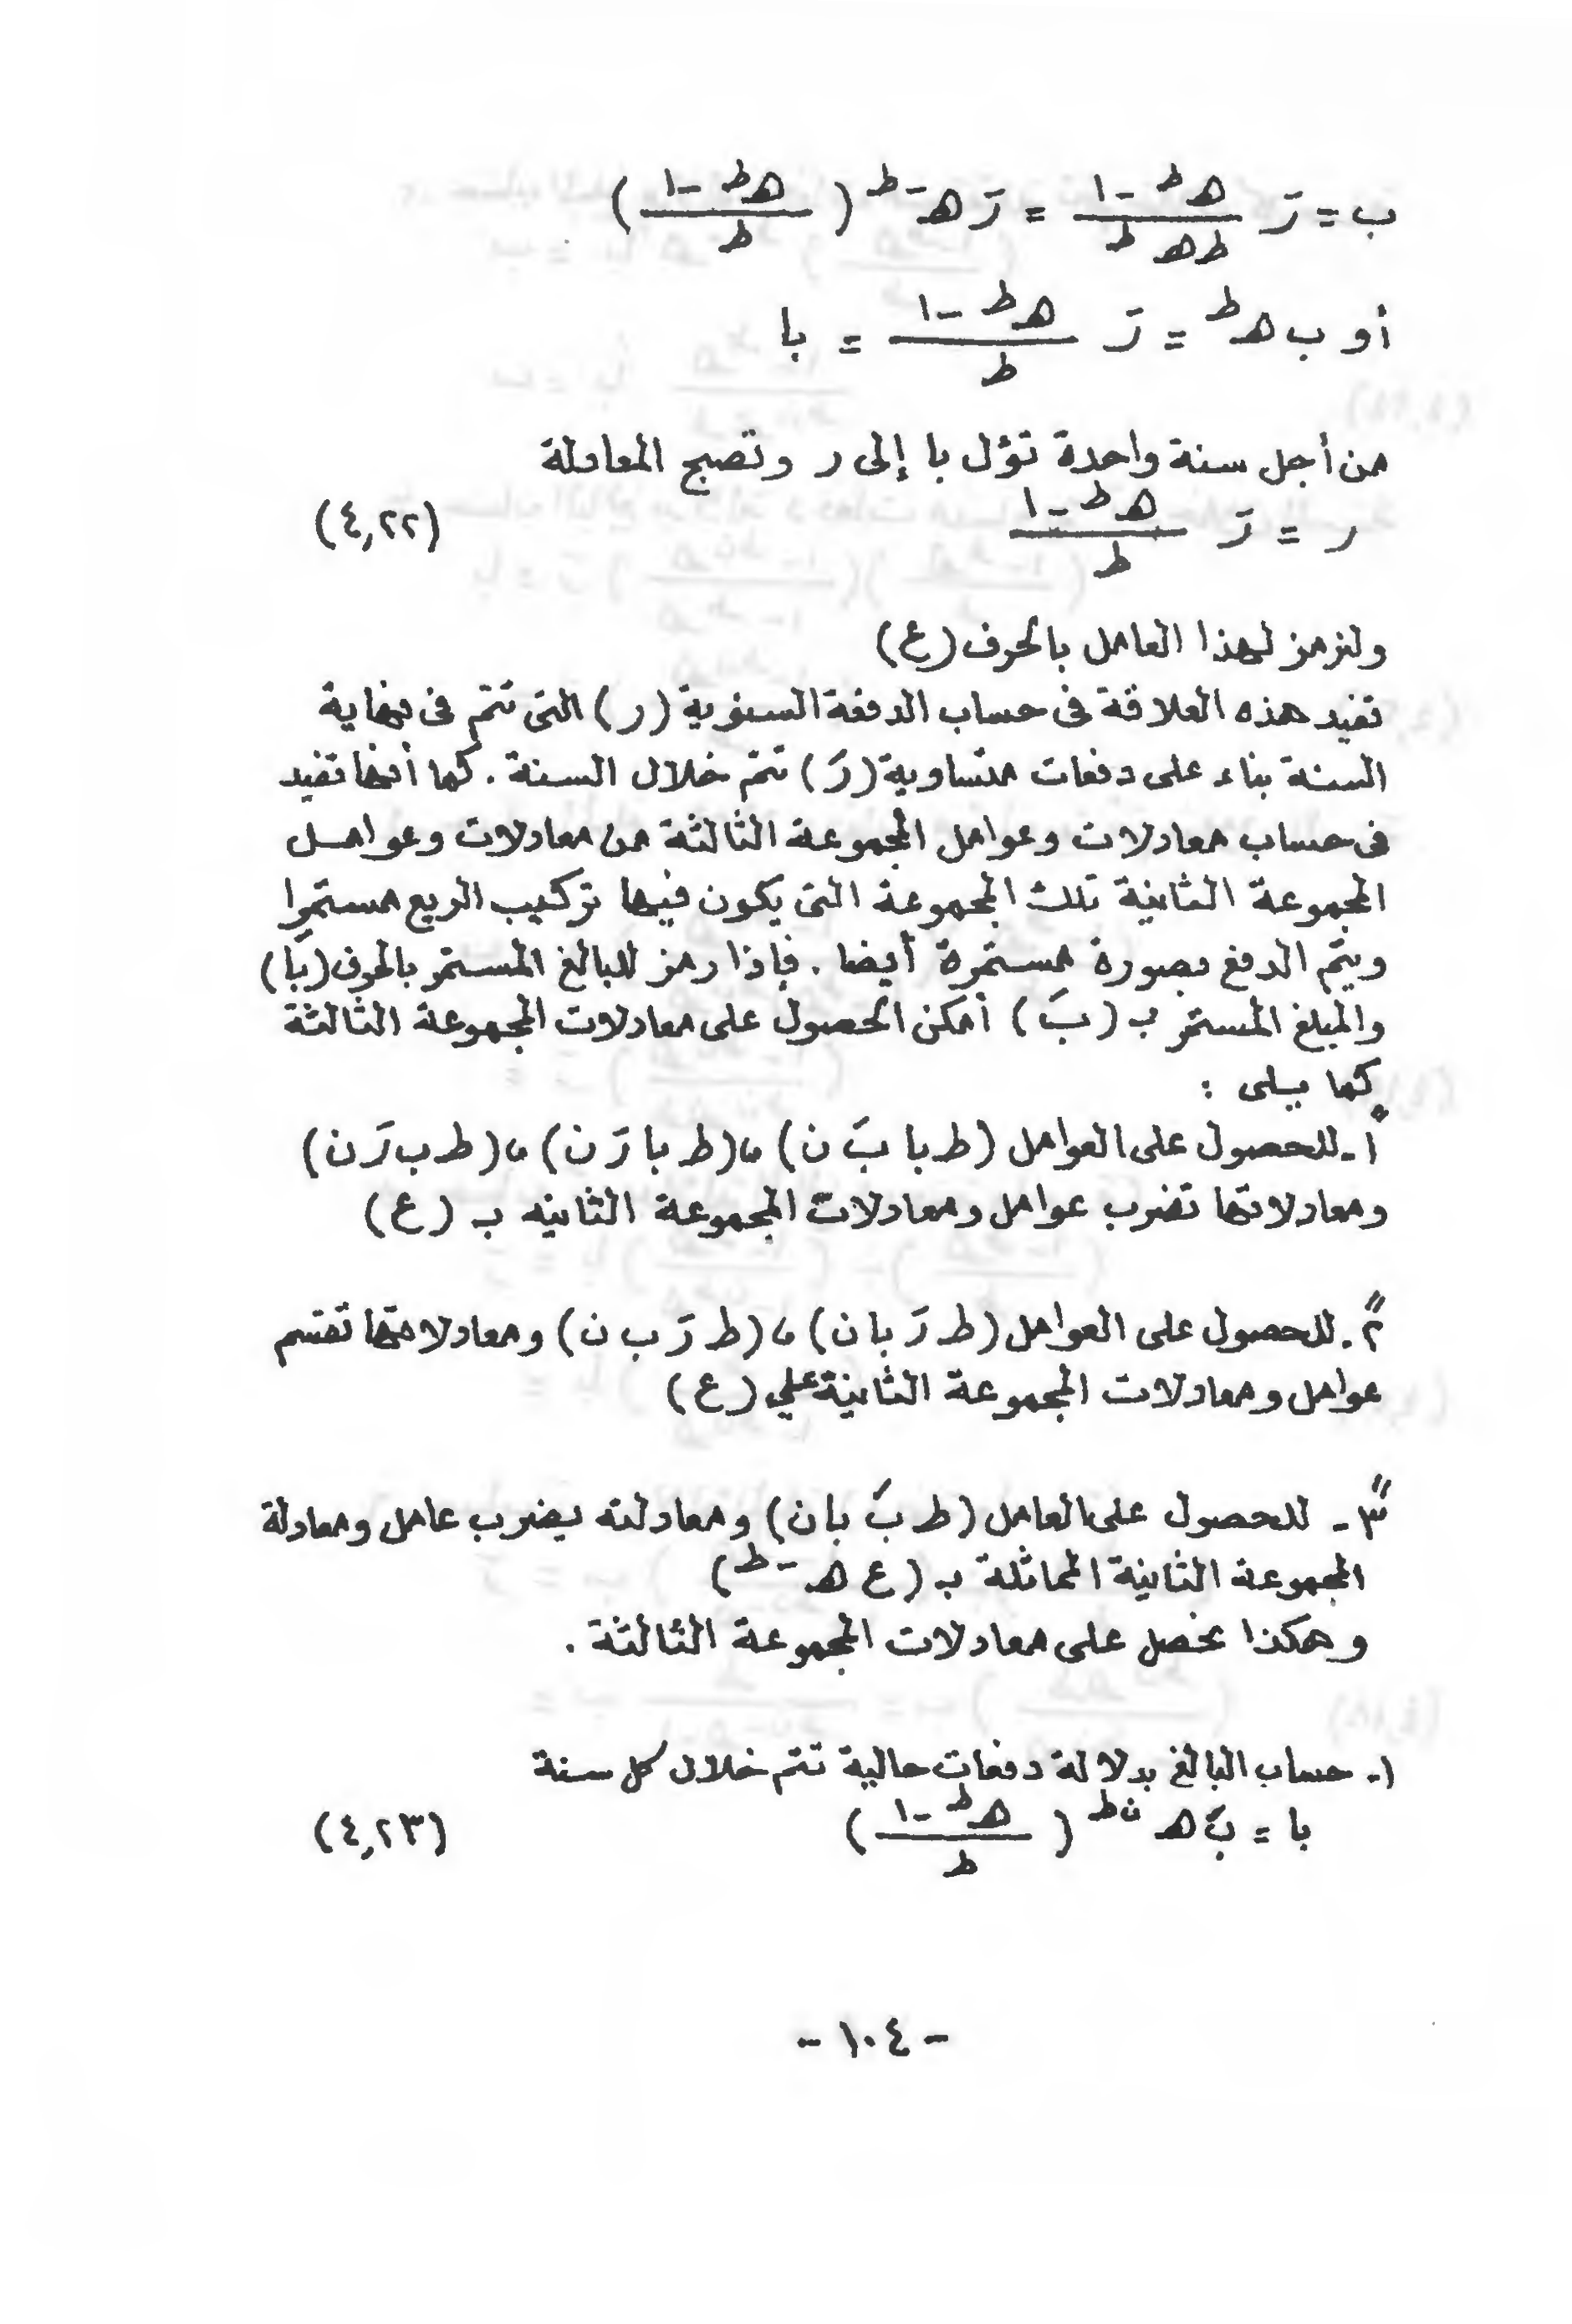 ب = رَ (هـ^ط - ١)/(ط هـ^ط) = رَ هـ^-ط ((هـ^ط - ١)/ط)
أو ب هـ^ط = رَ (هـ^ط - ١)/ط = با
من أجل سنة واحدة تؤل با إلى ر وتصبح المعادلة
ر = رَ (هـ^ط - ١)/ط (٤,٢٢)
ولنرمز لهذا العامل بالحرف (ع)
تفيد هذه العلاقة فى حساب الدفعة السنوية (ر) التى تتم فى نهاية
السنة بناء على دفعات متساوية (رَ) تتم خلال السنة . كما أنها تفيد
فى حساب معادلات وعوامل المجموعة الثالثة من معادلات وعوامل
المجموعة الثانية تلك المجموعة التى يكون فيها تركيب الريع مستمرا
ويتم الدفع بصورة مستمرة أيضا . فإذا رمز للبالغ المستمر بالحرف (بَا)
والمبلغ المستمر بـ (بَ) أمكن الحصول على معادلات المجموعة الثالثة
كما يلى :
١ً - للحصول على العوامل (ط با بَ ن) ، (ط با رَ ن) ، (ط ب رَ ن)
ومعادلاتها تضرب عوامل ومعادلات المجموعة الثانيه بـ (ع)
٢ً . للحصول على العوامل (ط رَ با ن) ، (ط رَ ب ن) ومعادلاتها تقسم
عوامل ومعادلات المجموعة الثانية علي (ع)
٣ً - للحصول على العامل (ط بَ با ن) ومعادلته يضرب عامل ومعادلة
المجموعة الثانية المماثلة بـ (ع هـ^-ط)
وهكذا نحصل على معادلات المجموعة الثالثة .
١- حساب البالغ بدلالة دفعات حالية تتم خلال كل سنة
با = بَ هـ^ن ط ((هـ^ط - ١)/ط) (٤,٢٣)
- ١٠٤ -